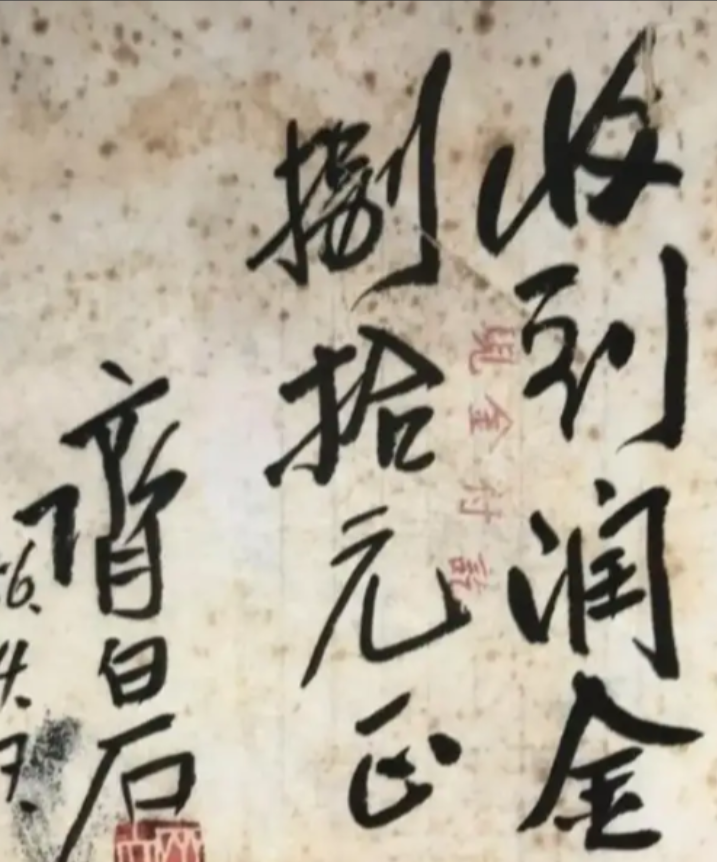 收到润金
捌拾元正
现金付讫
齊白石
56.4.9.